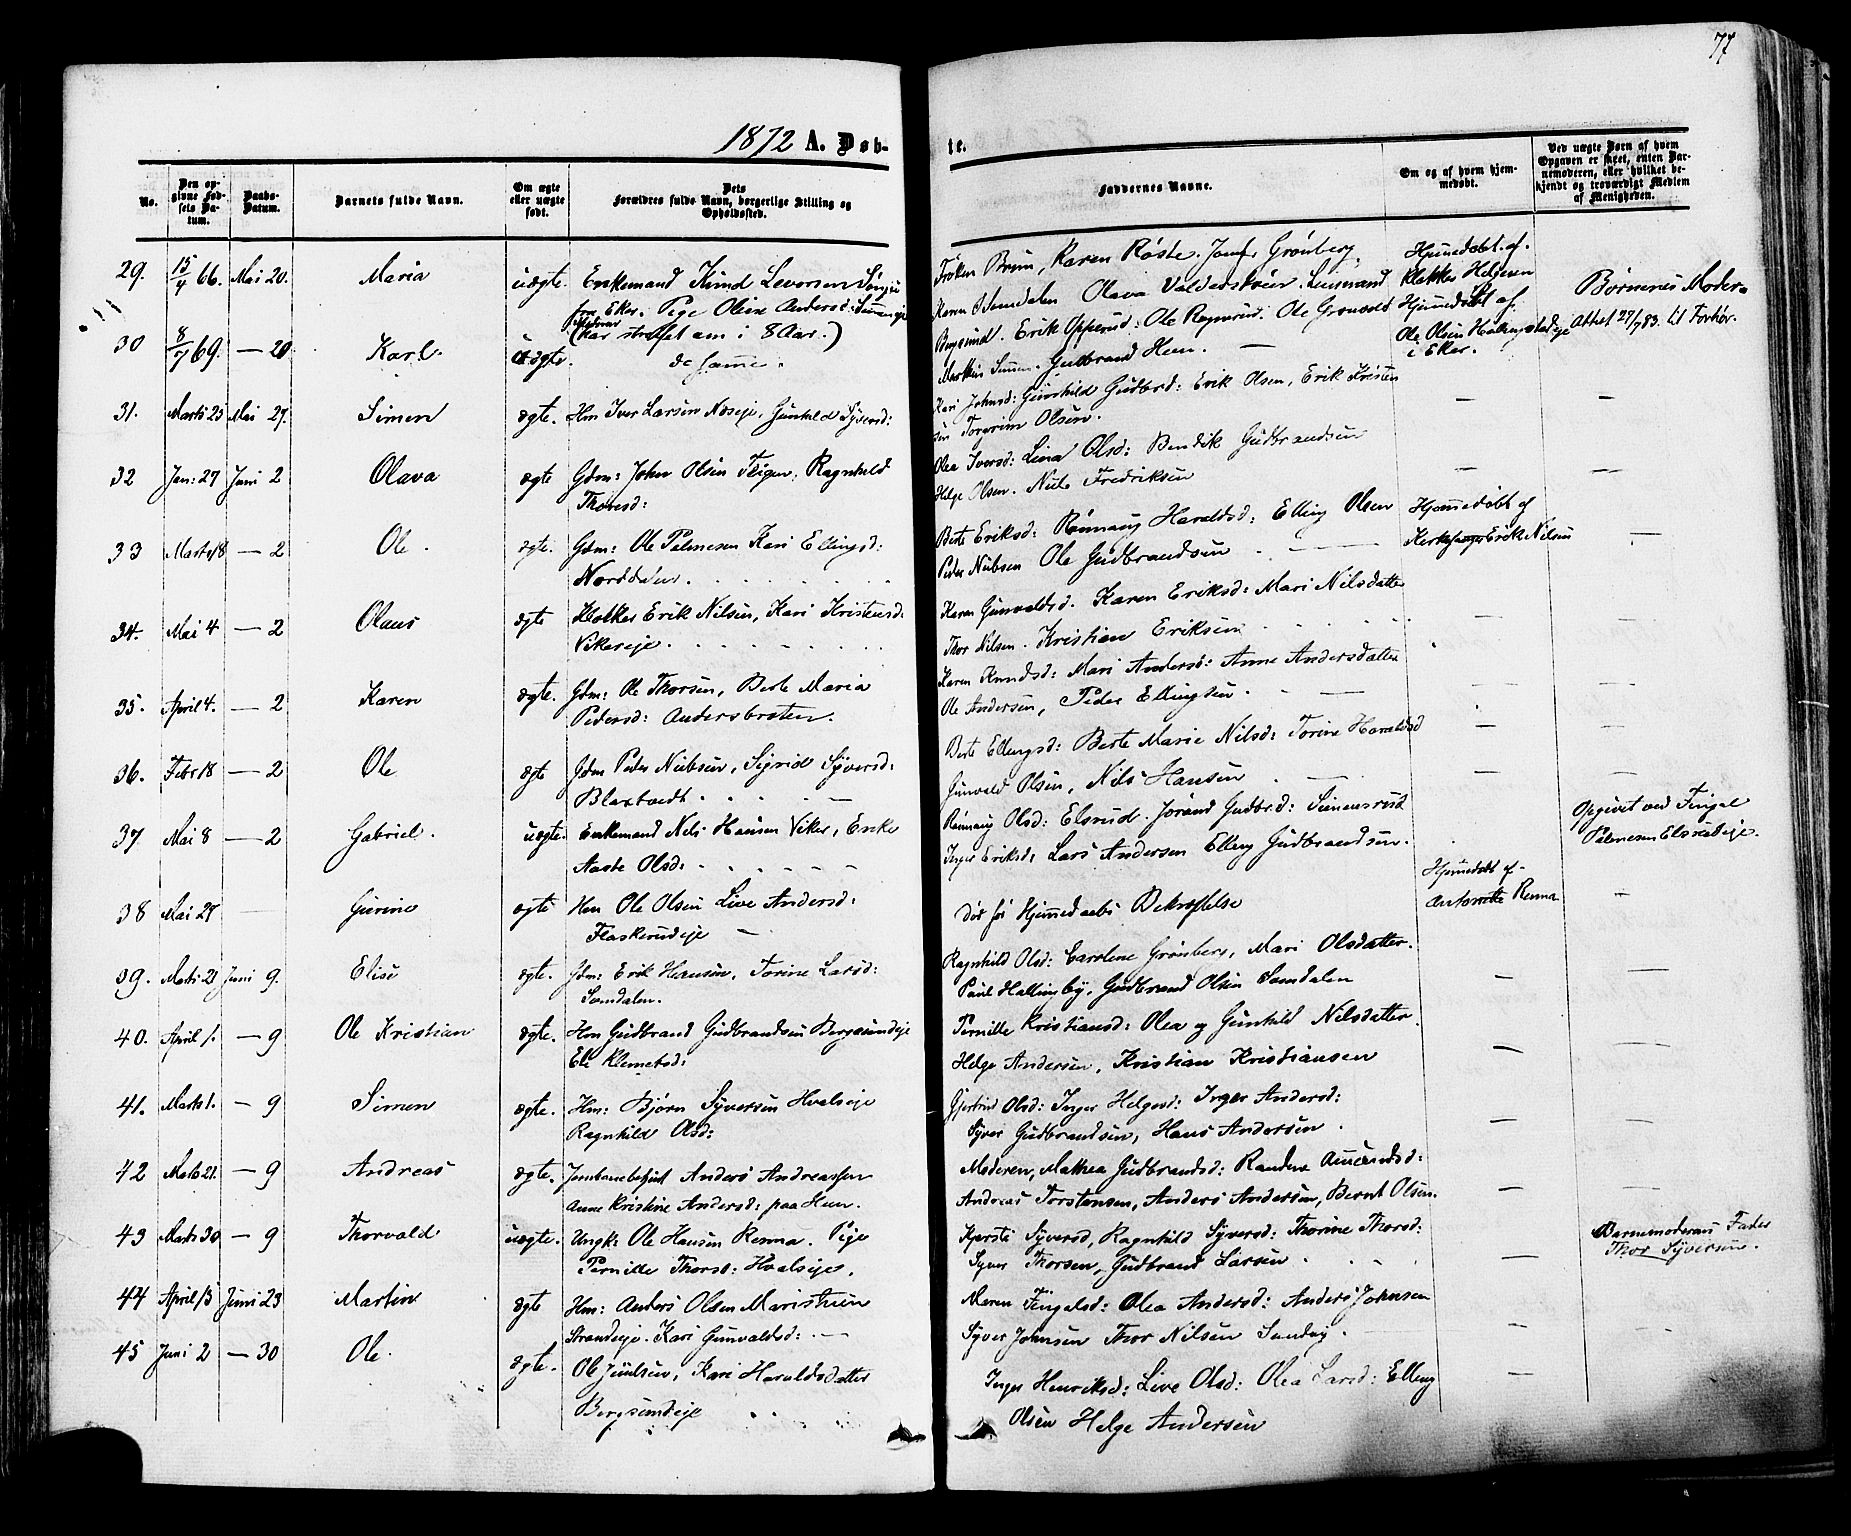 77
1872 A. Døb-
te.
No.
Den op-
givne Fød-
sels Da-
tum.
Daabs-
Datum.
Barnets fulde Navn.
Om ægte
eller uægte
født.
Dets
Forældres fulde Navn, borgerlige Stilling og
Opholdssted.
Faddernes Navne.
Om og af hvem hjem-
medøbt.
Ved uægte Børn af hvem
Opgaven er skeet, enten Bar-
nemoderen, eller hvilket be-
kjendt og troværdigt Medlem
af Menigheden.
29. 15/4 66. Mai 20. Maria uægte. Enkemand Knud Levorsen
fra Eker. Pige Oline Andersd:
(har straffet am i 8 Aar.)
Frøken Bruun, Karen Røste. Jomf. Grønberg,
Hjemmedøbt af
Klokker Helgesen
30 8/7 69. — 20. Karl. uægte. de samme.
Olava Lensmand
Bergsund. Erik Opperud. Ole Ragnsrud. Ole Grønvold
Gudbrand Hun. —
Hjemmedøbt af
Ole Olsen
i Eker.
Børnenes Moder.
Attest 27/7 83. til Forhør.
31. Marts 25 Mai 27. Simen ægte. Hm Iver Larsen Næseje, Gunhild Syversd:
Kari Johnsd: Gunhild Gudbrd: Erik Olsen, Erik Kristen
sen Torgrim Olsen.
32 Jan: 27 Juni 2 Olava ægte Gdm: John Olsen Ragnhild
Thoresd:
Olea Iversd: Lina Olsd: Bendik Gudbrandsen
Helge Olsen. Nils Fredriksen
33 Marts 18 — 2 Ole. ægte. Gdm: Ole Palmesen Kari Ellingsd:
Norddalen.
Berte Eriksd: Rønnaug Haraldsd: Elling Olsen
Peder Nubsen Ole Gudbrandsen
Hjemmedøbt af
Kirkesanger Erik Nilsen
34. Mai 4 — 2 Olaus ægte Klokker Erik Nilsen, Kari Kristensd:
Vikereje.
Karen Gunvaldsd. Karen Eriksd: Mari Nilsdatter
Thor Nilsen. Kristian Eriksen
35. April 4. — 2 Karen ægte. Gdm: Ole Thorsen, Berte Maria
Pedersd: Andersbraten.
Karen Knudsd: Mari Andersd: Anne Andersdatter
Ole Andersen, Peder Ellingsen.
36. Febr 18 — 2 Ole ægte Gdm Peder Nubsen, Sigrid Syversd:
Blaxtvedt.
Berte Ellingsd: Berte Marie Nilsd: Torine Haraldsd
Gunvald Olsen, Nils Hansen
37. Mai 8 — 2 Gabriel. uægte. Enkemand Nils Hansen Viker, Enke
Aaste Olsd:
Rønnaug Olsd: Elsrud. Jorand Gudbrd: Simensrud
Inger Eriksd: Lars Andersen Elling Gudbrandsen.
Opgivet ved Fingal
Palmesen Elsrudeje.
38 Mai 27 — Gurine ægte Hm Ole Olsen Live Andersd:
Flaskerudeje —
Død før Hjemmedaabs Bekræftelse
Hjemmedøbt af
Antonette Renna
39. Marts 21 Juni 9. Elise ægte. Gdm: Erik Hansen, Torine Larsd:
Samdalen.
Ragnhild Olsd: Caroline Grønberg, Mari Olsdatter.
Paul Hallingby, Gudbrand Olsen Samdalen
40. April 1. — 9 Ole Kristian ægte. Hm Gudbrand Gudbrandsen Bergsundeje
Eli Klemetsd:
Pernille Kristiansd: Olea og Gunhild Nilsdatter.
Helge Andersen, Kristian Kristiansen
41. Marts 1. — 9 Simen ægte. Hm: Bjørn Syversen Hvalseje
Ragnhild Olsd:
Gjertrud Olsd: Inger Helgesd: Inger Andersd:
Syver Gudbrandsen, Hans Andersen.
42 Marts 21. — 9 Andreas ægte. Jernbanebetjent Anders Andreassen
Anne Kristine Andersd: paa Heen.
Moderen, Mathea Gudbrandsd: Randine Amundsd:
Andreas Torstensen, Anders Andersen, Bernt Olsen.
43 Marts 30 — 9 Thorvald uægte. Ungk: Ole Hansen Renna. Pige
Pernille Thorsd: Hvalseje.
Kjersti Syversd, Ragnhild Syversd: Thorine Thorsd:
Syver Thorsen, Gudbrand Larsen
Barnemoderens Fader
Thor Syversen.
44 April 13 Juni 23 Martin ægte Hm: Anders Olsen
Strandeje. Kari Gunvaldsd: —
Maren Fingalsd: Olea Andersd: Anders Johnsen
Syver Johnsen Thor Nilsen Sandvig.
45 Juni 2 — 30 Ole. ægte. Ole Juulsen, Kari Haraldsdatter
Bergsundeje
Inger Henriksd: Live Olsd: Olea Larsd: Elling
Olsen Helge Andersen